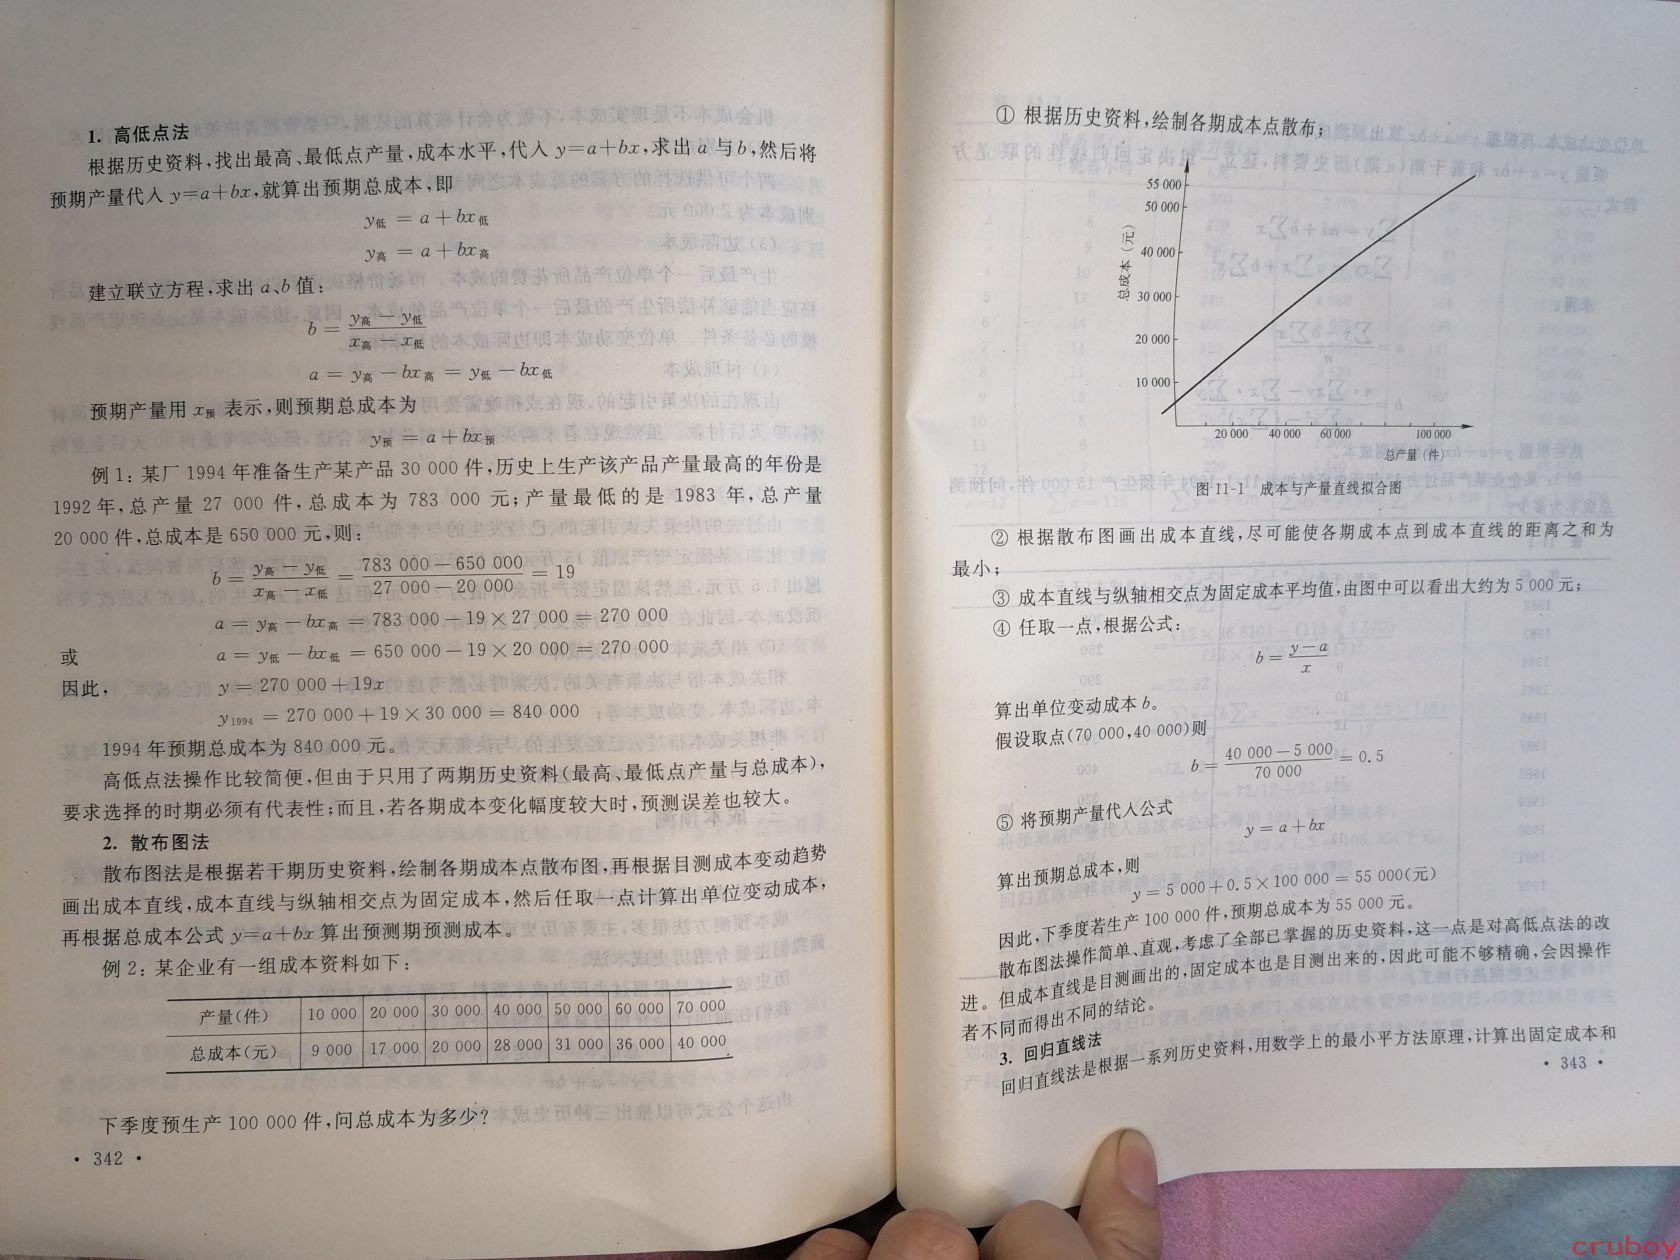 1. 高低点法
根据历史资料,找出最高、最低点产量,成本水平,代入 y=a+bx,求出 a 与 b,然后将
预期产量代入 y=a+bx,就算出预期总成本,即
y低 = a + bx低
y高 = a + bx高
建立联立方程,求出 a、b 值:
b = (y高 - y低) / (x高 - x低)
a = y高 - bx高 = y低 - bx低
预期产量用 x预 表示,则预期总成本为
y预 = a + bx预
例 1: 某厂 1994 年准备生产某产品 30 000 件,历史上生产该产品产量最高的年份是
1992 年,总产量 27 000 件,总成本为 783 000 元;产量最低的是 1983 年,总产量
20 000 件,总成本是 650 000 元,则:
b = (y高 - y低) / (x高 - x低) = (783 000 - 650 000) / (27 000 - 20 000) = 19
a = y高 - bx高 = 783 000 - 19 × 27 000 = 270 000
或 a = y低 - bx低 = 650 000 - 19 × 20 000 = 270 000
因此, y = 270 000 + 19x
y1994 = 270 000 + 19 × 30 000 = 840 000
1994 年预期总成本为 840 000 元。
高低点法操作比较简便,但由于只用了两期历史资料(最高、最低点产量与总成本),
要求选择的时期必须有代表性;而且,若各期成本变化幅度较大时,预测误差也较大。
2. 散布图法
散布图法是根据若干期历史资料,绘制各期成本点散布图,再根据目测成本变动趋势
画出成本直线,成本直线与纵轴相交点为固定成本,然后任取一点计算出单位变动成本,
再根据总成本公式 y=a+bx 算出预测期预测成本。
例 2: 某企业有一组成本资料如下:
产量(件) 10 000 20 000 30 000 40 000 50 000 60 000 70 000
总成本(元) 9 000 17 000 20 000 28 000 31 000 36 000 40 000
下季度预生产 100 000 件,问总成本为多少?
· 342 ·
① 根据历史资料,绘制各期成本点散布;
55 000
50 000
40 000
30 000
20 000
10 000
总成本(元)
20 000 40 000 60 000 100 000
总产量(件)
图 11-1 成本与产量直线拟合图
② 根据散布图画出成本直线,尽可能使各期成本点到成本直线的距离之和为
最小;
③ 成本直线与纵轴相交点为固定成本平均值,由图中可以看出大约为 5 000 元;
④ 任取一点,根据公式:
b = (y-a) / x
算出单位变动成本 b。
假设取点(70 000,40 000)则
b = (40 000 - 5 000) / 70 000 = 0.5
⑤ 将预期产量代入公式
y = a + bx
算出预期总成本,则
y = 5 000 + 0.5 × 100 000 = 55 000(元)
因此,下季度若生产 100 000 件,预期总成本为 55 000 元。
散布图法操作简单、直观,考虑了全部已掌握的历史资料,这一点是对高低点法的改
进。但成本直线是目测画出的,固定成本也是目测出来的,因此可能不够精确,会因操作
者不同而得出不同的结论。
3. 回归直线法
回归直线法是根据一系列历史资料,用数学上的最小平方法原理,计算出固定成本和
· 343 ·
cruboy